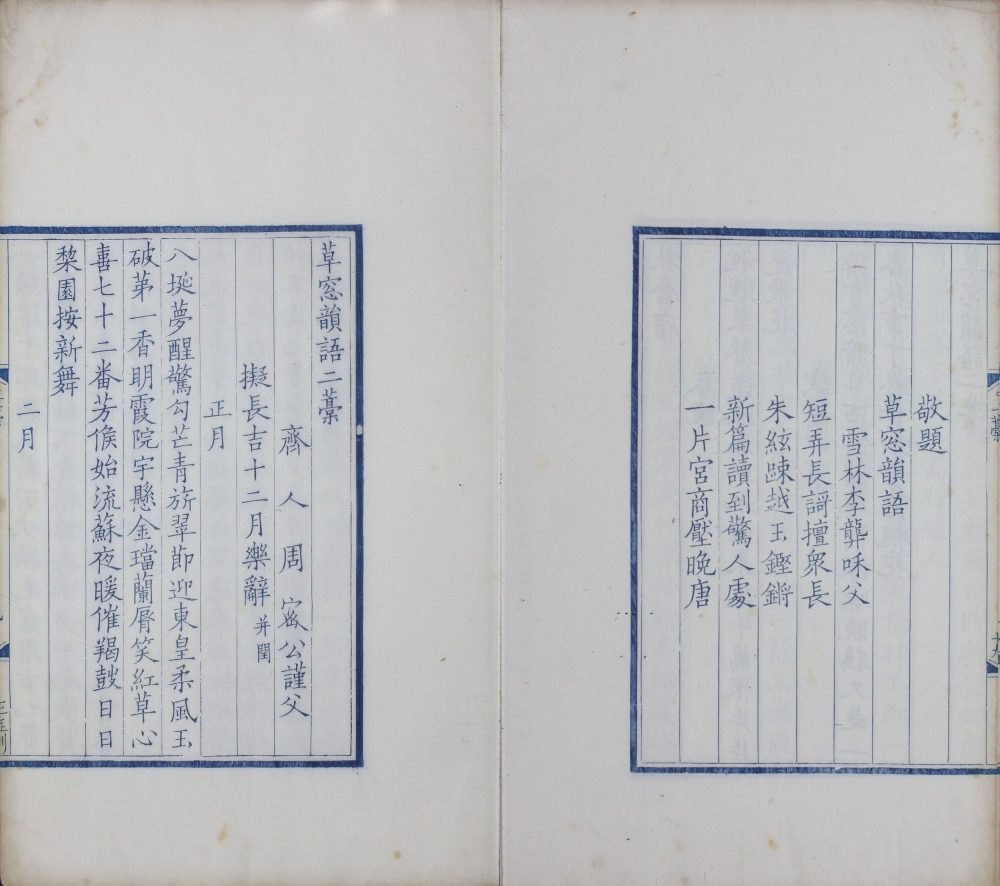 敬題
草窓韻語
雪林李龏和父
短弄長謌擅衆長
朱絃疎越玉鏗鏘
新篇讀到驚人處
一片宮商壓晚唐
草窓韻語二藁
齊人周密公謹父
擬長吉十二月樂辭并閏
正月
八埏夢醒驚勾芒青旂翠節迎東皇柔風玉
破苐一香眀霞院宇懸金璫蘭脣笑紅草心
喜七十二番芳𠋫始流蘇夜暖催羯鼓日日
棃園按新舞
二月